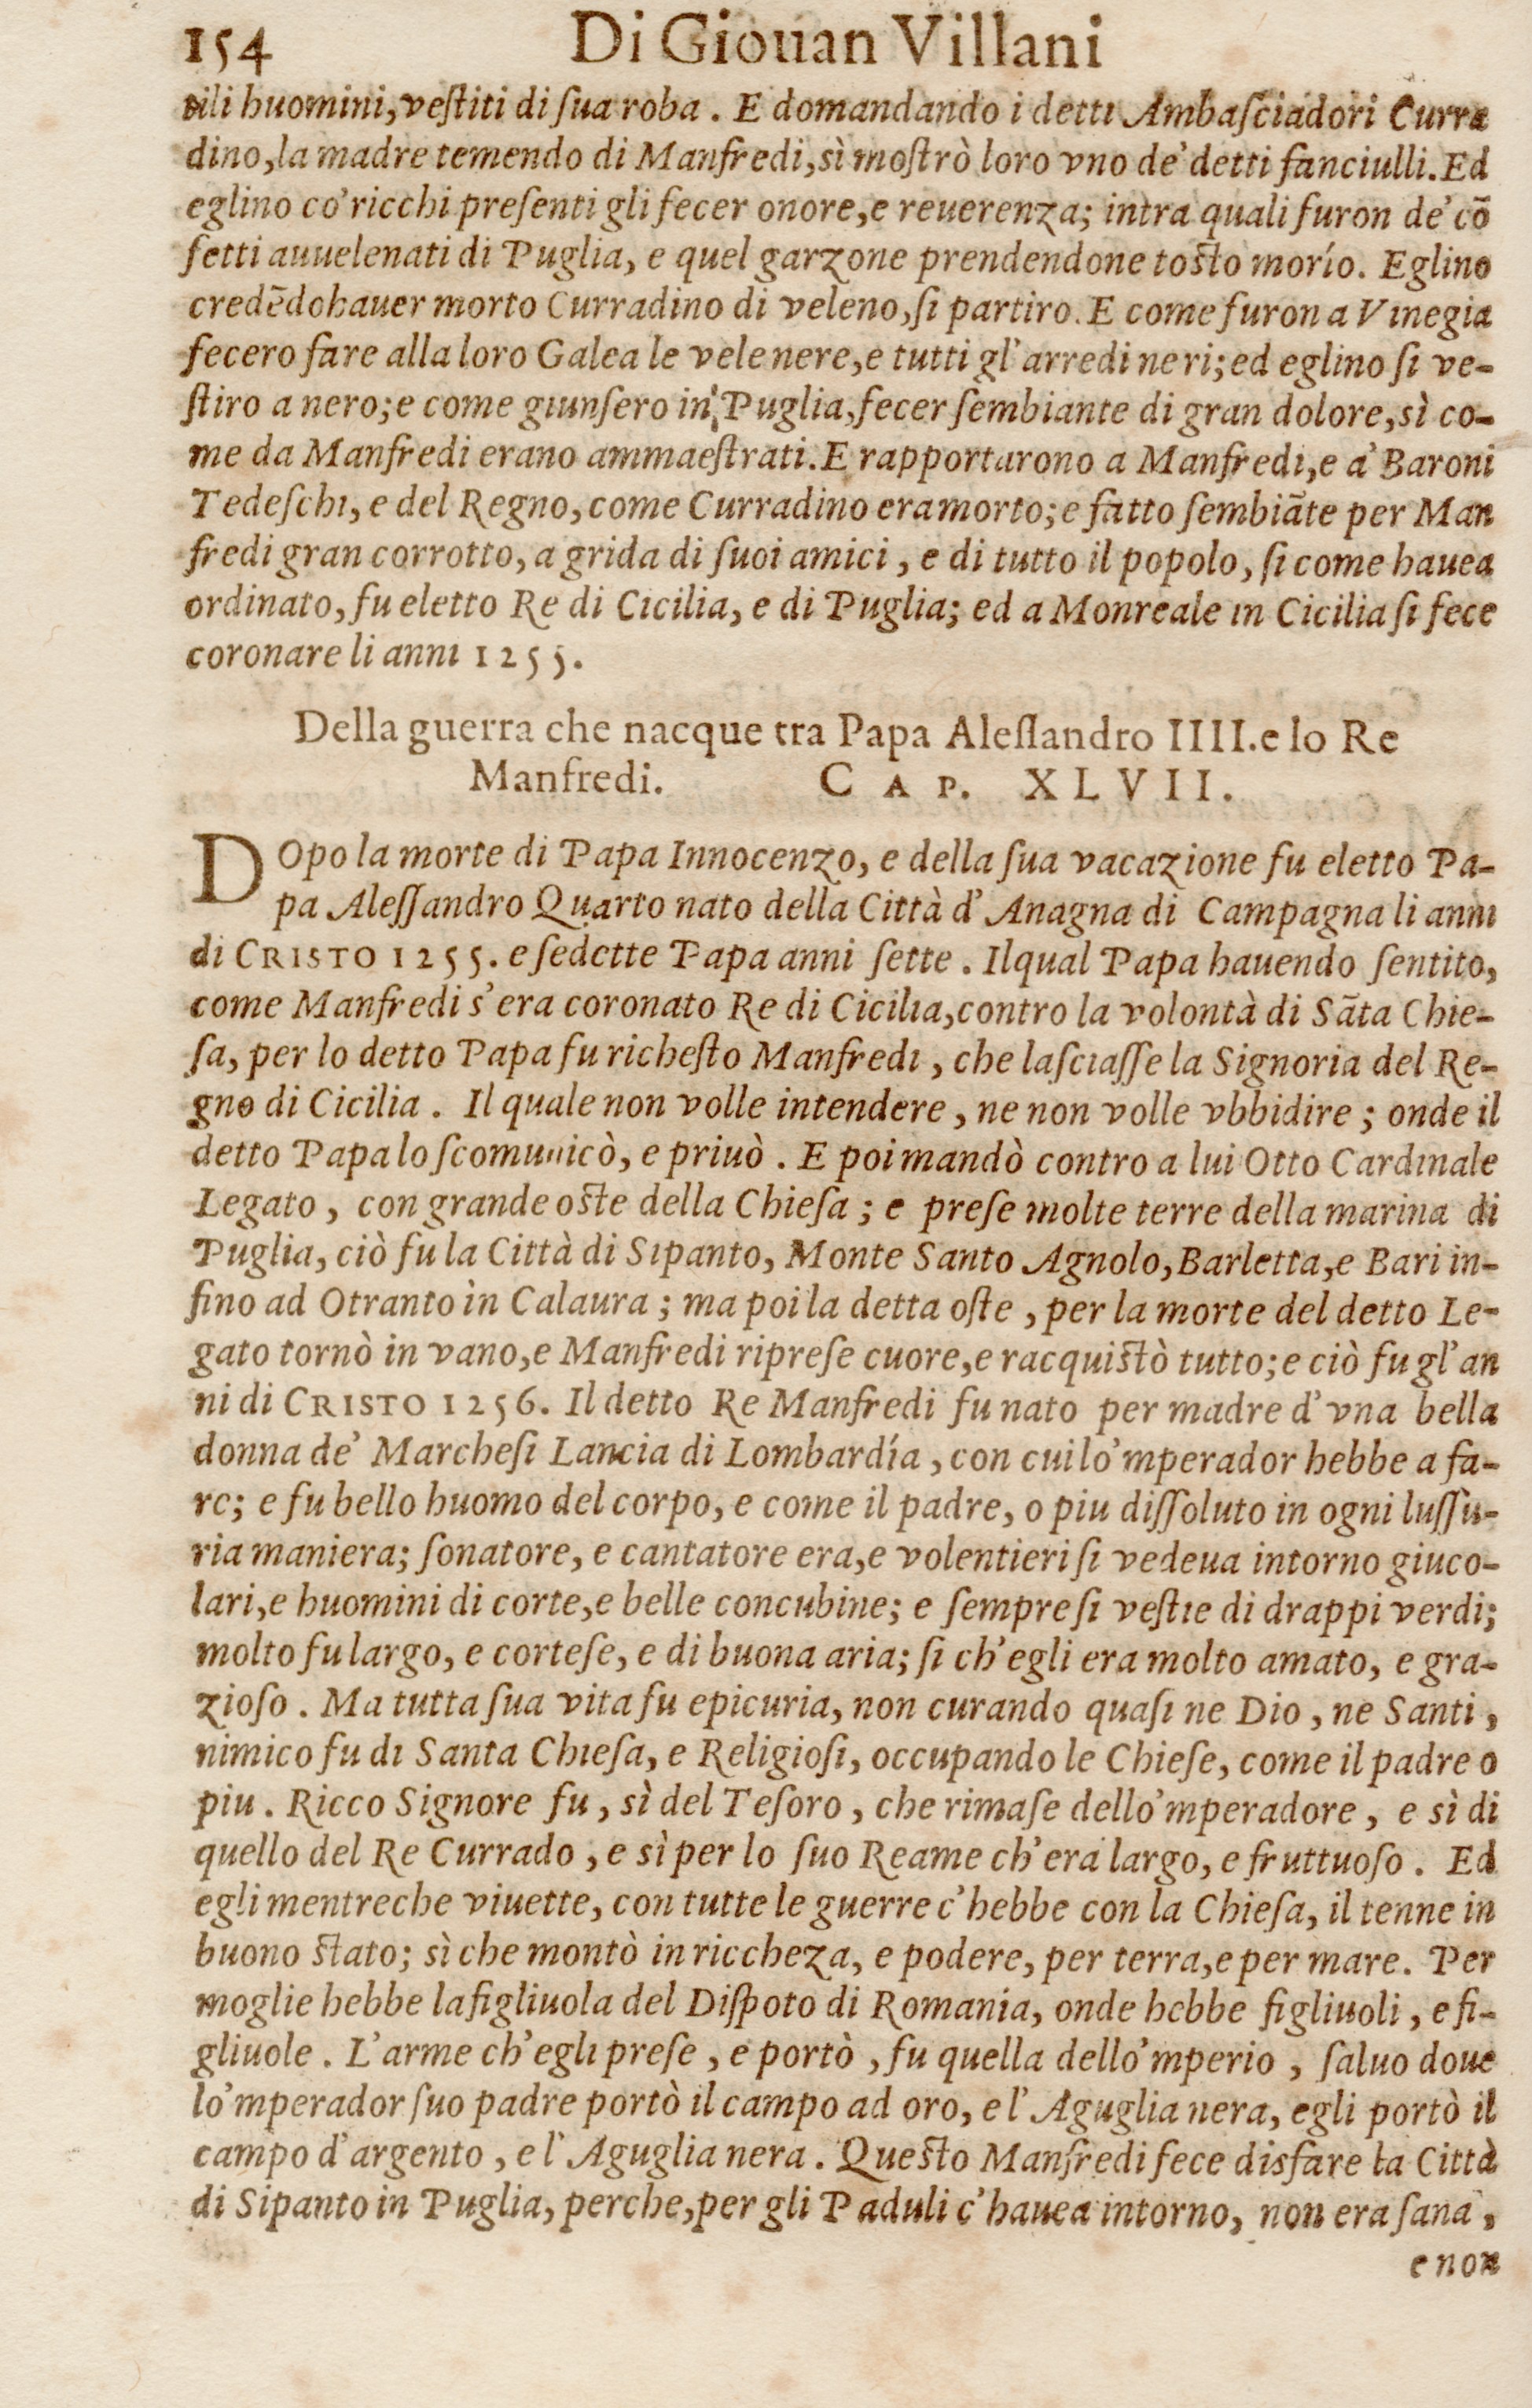 154 Di Giouan Villani
tili huomini, veſtiti di ſua roba. E domandando i detti Ambaſciadori Curra
dino, la madre temendo di Manfredi, sì moſtrò loro vno de' detti fanciulli. Ed
eglino co' ricchi preſenti gli fecer onore, e reuerenza; intra quali furon de' cõ
fetti auuelenati di Puglia, e quel garzone prendendone toſto morío. Eglino
credẽdo hauer morto Curradino di veleno, ſi partiro. E come furon a Vinegia
fecero fare alla loro Galea le vele nere, e tutti gl' arredi neri; ed eglino ſi ve-
ſtiro a nero; e come giunſero in Puglia, fecer ſembiante di gran dolore, sì co-
me da Manfredi erano ammaeſtrati. E rapportarono a Manfredi, e a' Baroni
Tedeſchi, e del Regno, come Curradino era morto; e fatto ſembiãte per Man
fredi gran corrotto, a grida di ſuoi amici, e di tutto il popolo, ſi come hauea
ordinato, fu eletto Re di Cicilia, e di Puglia; ed a Monreale in Cicilia ſi fece
coronare li anni 1255.
Della guerra che nacque tra Papa Aleſſandro IIII. e lo Re
Manfredi. CAP. XLVII.
DOpo la morte di Papa Innocenzo, e della ſua vacazione fu eletto Pa-
pa Aleſſandro Quarto nato della Città d' Anagna di Campagna li anni
di CRISTO 1255. e ſedette Papa anni ſette. Ilqual Papa hauendo ſentito,
come Manfredi s' era coronato Re di Cicilia, contro la volontà di Sãta Chie-
ſa, per lo detto Papa fu richeſto Manfredi, che laſciaſſe la Signoria del Re-
gno di Cicilia. Il quale non volle intendere, ne non volle vbbidire; onde il
detto Papa lo ſcomunicò, e priuò. E poi mandò contro a lui Otto Cardinale
Legato, con grande oſte della Chieſa; e preſe molte terre della marina di
Puglia, ciò fu la Città di Sipanto, Monte Santo Agnolo, Barletta, e Bari in-
fino ad Otranto ìn Calaura; ma poi la detta oſte, per la morte del detto Le-
gato tornò in vano, e Manfredi ripreſe cuore, e racquiſtò tutto; e ciò fu gl' an
ni di CRISTO 1256. Il detto Re Manfredi fu nato per madre d' vna bella
donna de' Marcheſi Lancia di Lombardía, con cui lo 'mperador hebbe a fa-
re; e fu bello huomo del corpo, e come il padre, o piu diſſoluto in ogni luſſu-
ria maniera; ſonatore, e cantatore era, e volentieri ſi vedeua intorno giuco-
lari, e huomini di corte, e belle concubine; e ſempre ſi veſtie di drappi verdi;
molto fu largo, e corteſe, e di buona aria; ſi ch' egli era molto amato, e gra-
zioſo. Ma tutta ſua vita fu epicuria, non curando quaſi ne Dio, ne Santi,
nimico fu di Santa Chieſa, e Religioſi, occupando le Chieſe, come il padre o
piu. Ricco Signore fu, sì del Teſoro, che rimaſe dello 'mperadore, e sì di
quello del Re Currado, e sì per lo ſuo Reame ch' era largo, e fruttuoſo. Ed
egli mentreche viuette, con tutte le guerre c' hebbe con la Chieſa, il tenne in
buono ſtato; sì che montò in riccheza, e podere, per terra, e per mare. Per
moglie hebbe la figliuola del Diſpoto di Romania, onde hebbe figliuoli, e fi-
gliuole. L' arme ch' egli preſe, e portò, fu quella dello 'mperio, ſaluo doue
lo 'mperador ſuo padre portò il campo ad oro, e l' Aguglia nera, egli portò il
campo d' argento, e l' Aguglia nera. Queſto Manfredi fece disfare la Città
di Sipanto in Puglia, perche, per gli Paduli c' hauea intorno, non era ſana,
e non